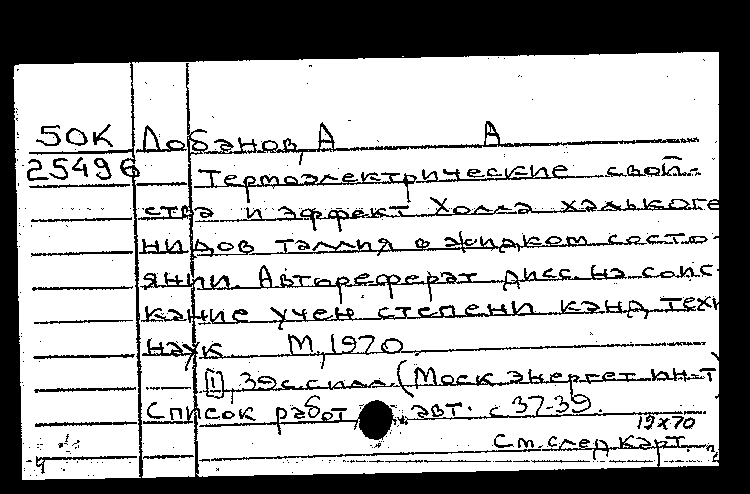 50К Лобанов, А А
25496 Термоэлектрические свой-
ства и эффект Холла халькоге
нидов таллия в жидком состо-
янии. Автореферат дисс. на соис-
кание учен степени канд, техн
наук М, 1970
[1], 39 с. с илл. (Моск энергет ин-т)
Список работ авт. с 37-39.
19х70
См. след карт.